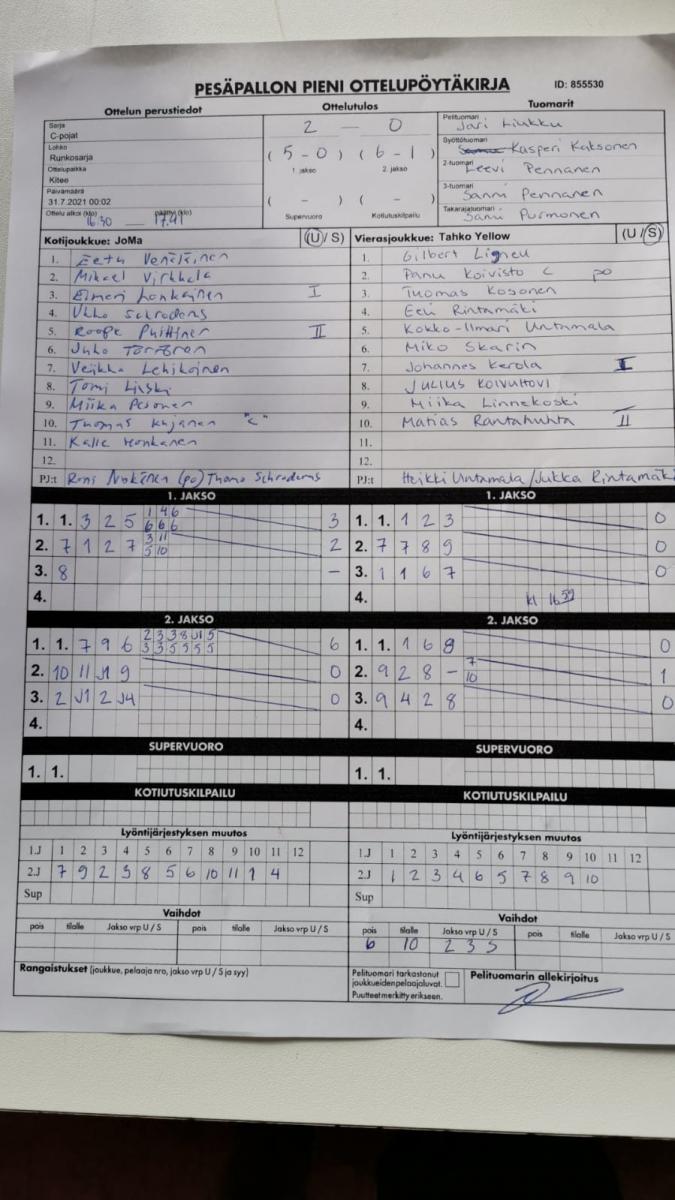 PESÄPALLON PIENI OTTELUPÖYTÄKIRJA ID: 855530
Ottelun perustiedot Ottelutulos Tuomarit
Sarja
C-pojat
Lohko
Runkosarja
Ottelupaikka
Kitee
Päivämäärä
31.7.2021 00:02
Ottelu alkoi (klo) päättyi (klo)
16.30 — 17.41
2 — 0
( 5 - 0 ) ( 6 - 1 )
1. jakso 2. jakso
( - ) ( - )
Supervuoro Kotiutuskilpailu
Pelituomari
Jari Liukku
Syöttötuomari
Kasperi Kaksonen
2-tuomari
Leevi Pennanen
3-tuomari
Sanni Pennanen
Takarajatuomari
Sanu Purmonen
Kotijoukkue: JoMa (U / S)
1. Eetu
2. Mikael Virkkala
3. Elmeri Lonkainen I
4. Ukko Schroderus
5. Roope II
6. Juho
7. Veikka
8. Tomi
9. Miika Pesonen
10. Thomas "C"
11. Kalle Honkanen
12.
PJ:t Roni (po) Schroderus
Vierasjoukkue: Tahko Yellow (U / S)
1. Gilbert
2. Panu Koivisto C po
3. Tuomas Kosonen
4. Eeli Rintamäki
5. Kokko-Ilmari Untamala
6. Miko Skarin
7. Johannes Kerola I
8. Julius
9. Miika Linnekoski
10. Matias Rantahuhta II
11.
12.
PJ:t Heikki Untamala / Jukka Rintamäki
1. JAKSO 1. JAKSO
1. 1. 3 2 5 1 4 6 3
6 6 6
2. 7 1 2 7 3 11 2
5 10
3. 8 —
4.
1. 1. 1 2 3 0
2. 7 7 8 9 0
3. 1 1 6 7 0
4. kl 16 59
2. JAKSO 2. JAKSO
1. 1. 7 9 6 2 3 3 8 J1 5 6
3 3 5 5 5 5
2. 10 11 J1 9 0
3. 2 J1 2 J4 0
4.
1. 1. 1 6 8 0
2. 9 2 8 - 7 1
10
3. 9 4 2 8 0
4.
SUPERVUORO SUPERVUORO
1. 1. 1. 1.
KOTIUTUSKILPAILU KOTIUTUSKILPAILU
Lyöntijärjestyksen muutos
1.J 1 2 3 4 5 6 7 8 9 10 11 12
2.J 7 9 2 3 8 5 6 10 11 1 4
Sup
Lyöntijärjestyksen muutos
1.J 1 2 3 4 5 6 7 8 9 10 11 12
2.J 1 2 3 4 6 5 7 8 9 10
Sup
Vaihdot
pois tilalle Jakso vrp U / S pois tilalle Jakso vrp U / S
Vaihdot
pois tilalle Jakso vrp U / S pois tilalle Jakso vrp U / S
6 10 2 3 S
Rangaistukset (joukkue, pelaaja nro, jakso vrp U / S ja syy)
Pelituomari tarkastanut
joukkueidenpelaajaluvat.
Puutteet merkitty erikseen.
Pelituomarin allekirjoitus